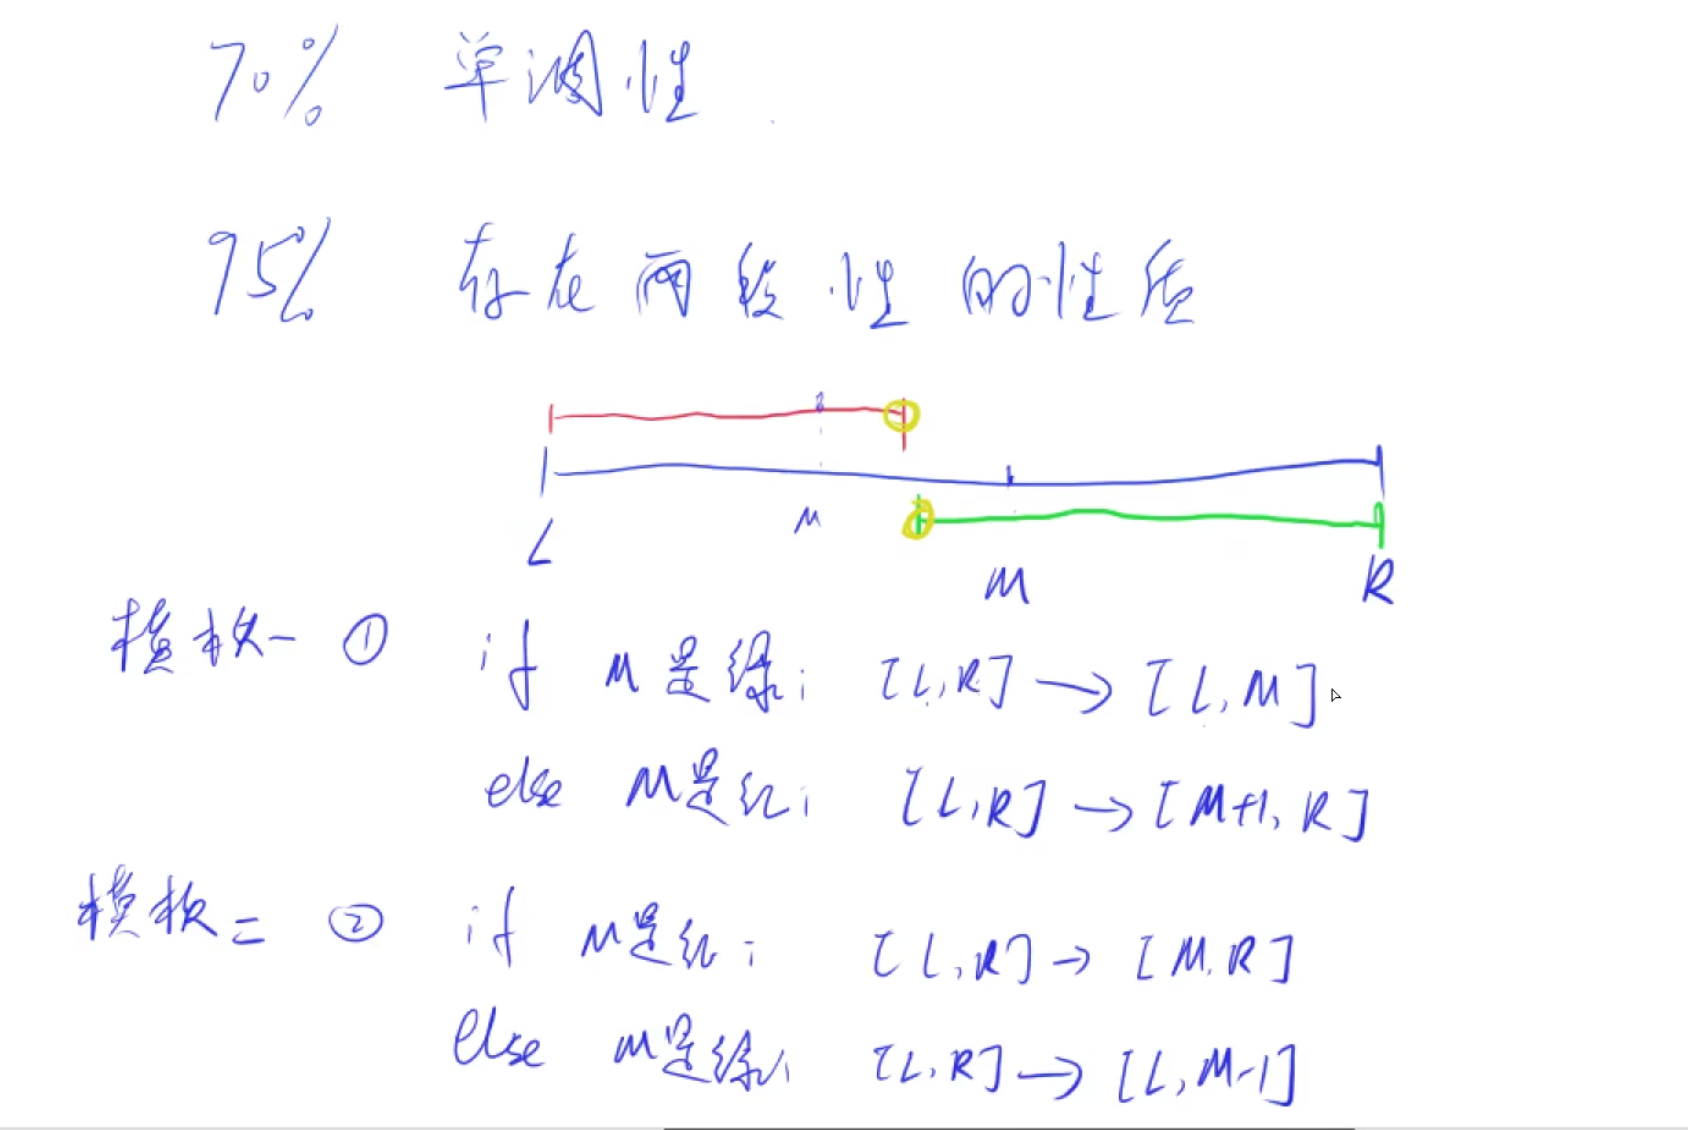 70% 单调性
95% 存在两段性的性质
M
L M R
模板一 ① if M是绿; [L,R] → [L,M].
else M是红; [L,R] → [M+1,R]
模板二 ② if M是红; [L,R] → [M,R]
else M是绿; [L,R] → [L,M-1]